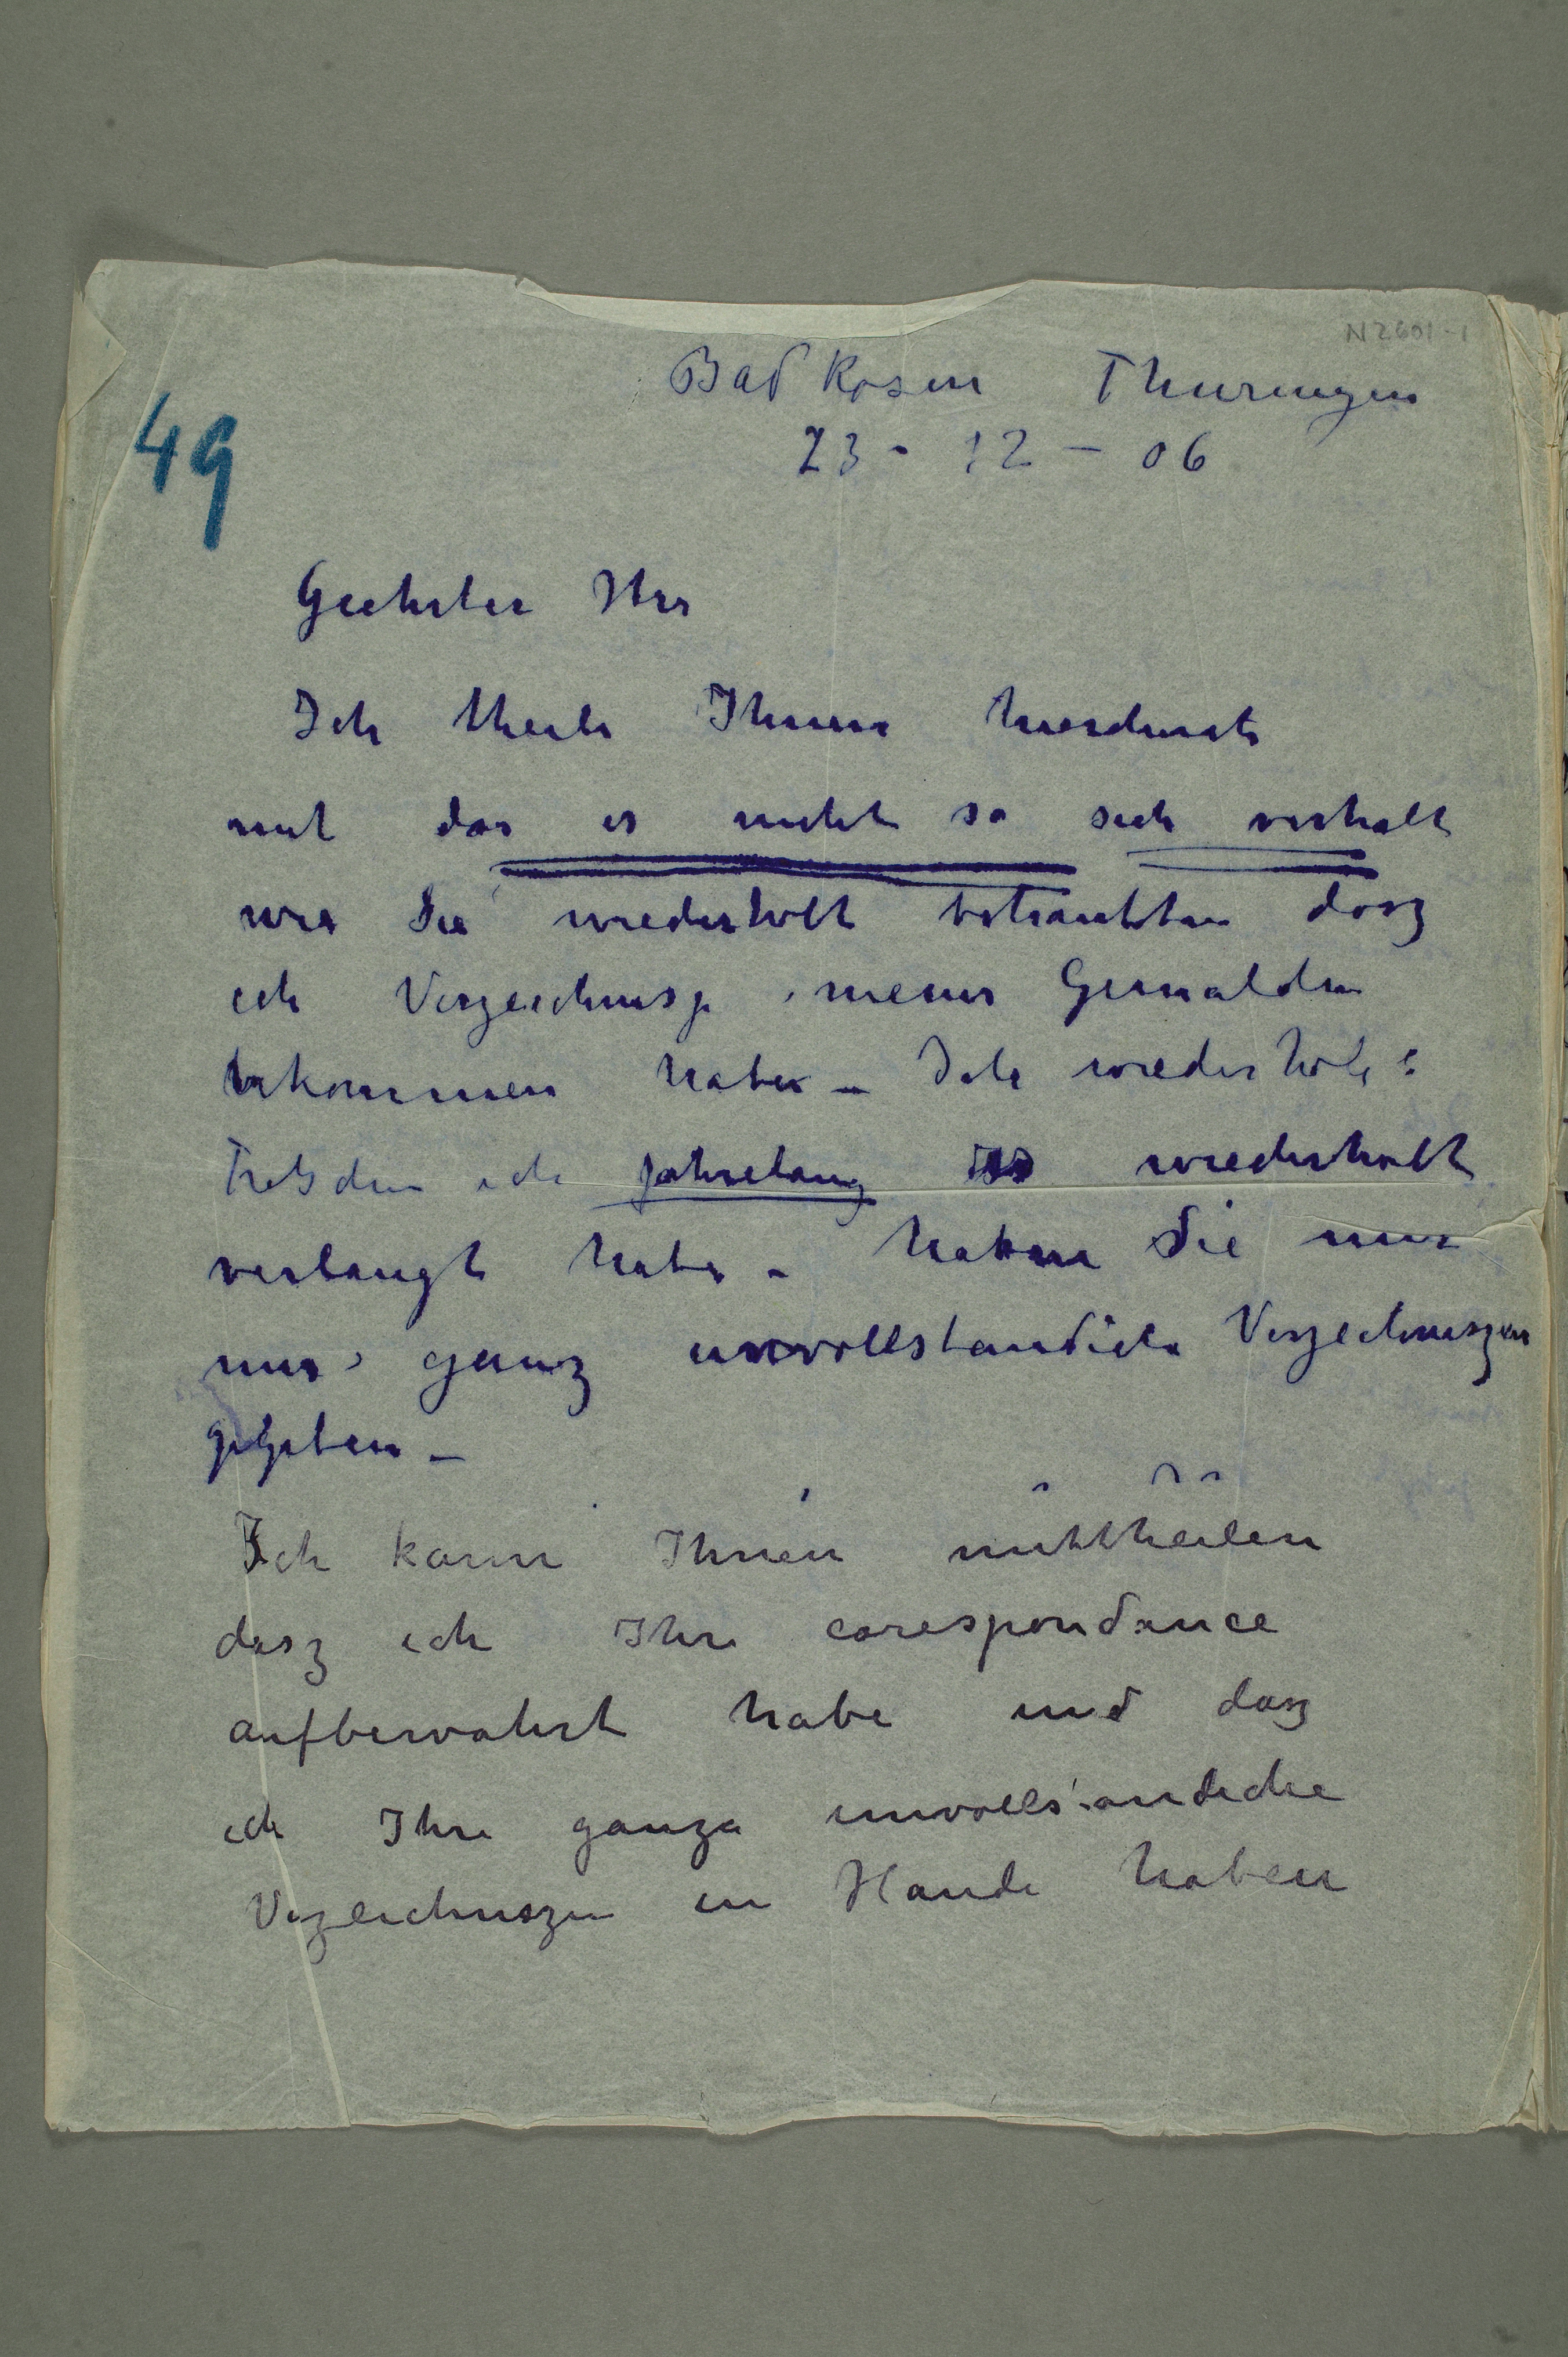 N2601-1
Bad Kosen Thuringen
23 - 12 - 06
49
Geehrter Herr
Ich theile Ihnen hierdurch
mit das es nicht so sich verhalt
wie Sie wiederholt
dasz
ich Verzeichnisz meiner Gemalden
bekommen habe – Ich wiederhole:
Trotzdem ich jahrelang wiederholt
verlangt habe – haben Sie mir
nur ganz unvollstandiche Verzeichniszen
gegeben –
Ich kann Ihnen mittheilen
dasz ich Ihre corespondance
aufbewahrt habe und dasz
ich Ihre ganze unvollstandiche
Verzeichniszen in Hande haben